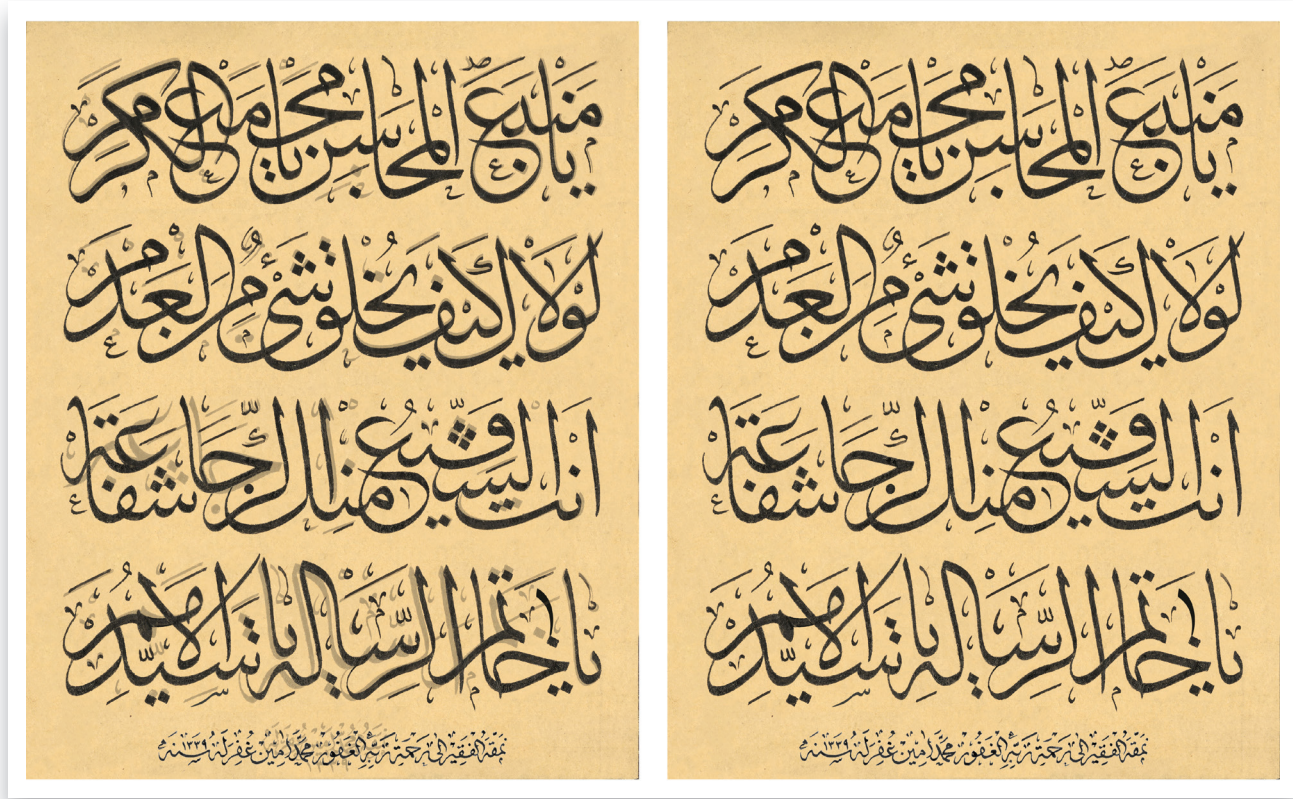 يا منبع المحاسن يا مجمع الكرم
لولاك كيف يخلق شئ من العدم
انت الشفيع منك الرجا شفاعة
يا خاتم الرسالة يا سيد الامم
نمقه الفقير الى رحمة ربه الغفور محمد امين غفر له سنه ١٣٣٩
يا منبع المحاسن يا مجمع الكرم
لولاك كيف يخلق شئ من العدم
انت الشفيع منك الرجا شفاعة
يا خاتم الرسالة يا سيد الامم
نمقه الفقير الى رحمة ربه الغفور محمد امين غفر له سنه ١٣٣٩